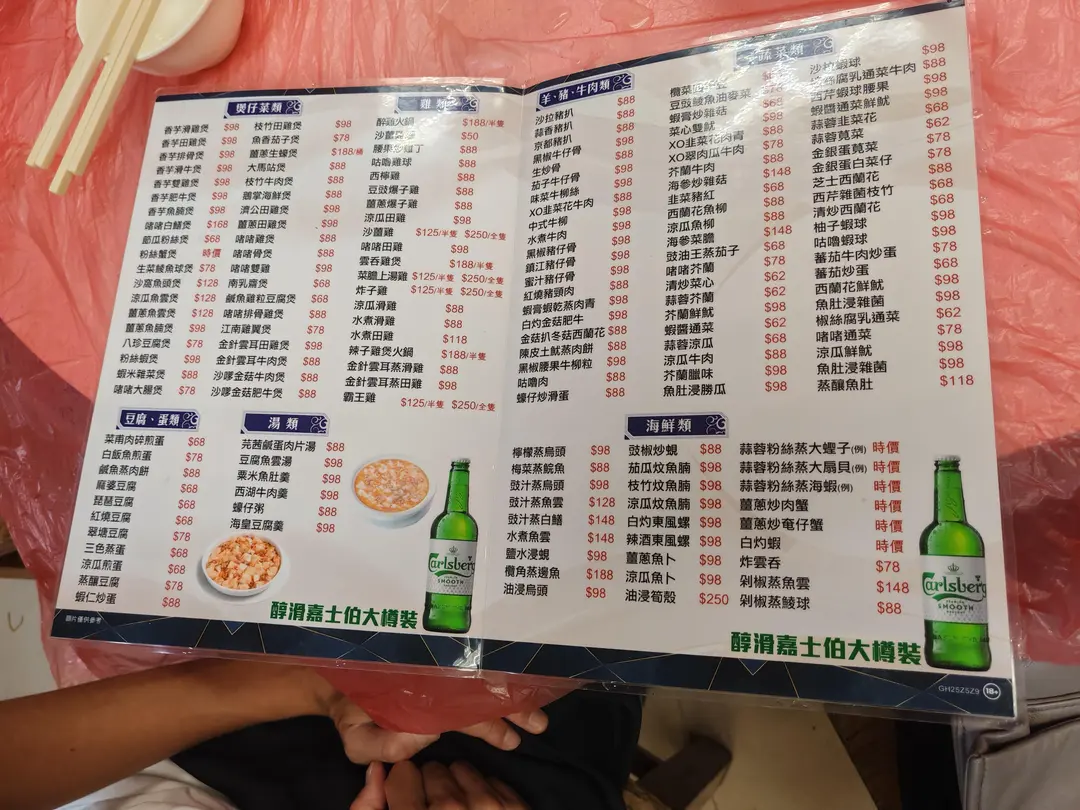 煲仔菜類
香芋滑雞煲 $98
香芋田雞煲 $98
香芋排骨煲 $98
香芋滑牛煲 $98
香芋雙雞煲 $98
香芋肥牛煲 $98
香芋魚腩煲 $98
啫啫白鱔煲 $168
節瓜粉絲煲 $68
粉絲蟹煲 時價
生菜鯪魚球煲 $78
沙窩魚頭煲 $128
涼瓜魚雲煲 $128
薑蔥魚雲煲 $128
薑蔥魚腩煲 $98
八珍豆腐煲 $78
粉絲蝦煲 $98
蝦米雜菜煲 $88
啫啫大腸煲 $78
枝竹田雞煲 $98
魚香茄子煲 $78
薑蔥生蠔煲 $188/桶
大馬站煲 $88
枝竹牛肉煲 $88
鵝掌海鮮煲 $88
濟公田雞煲 $98
薑蔥田雞煲 $98
啫啫雞煲 $88
啫啫骨煲 $88
啫啫雙雞 $98
南乳齋煲 $68
鹹魚雞粒豆腐煲 $68
啫啫排骨雞煲 $88
江南雞翼煲 $78
金針雲耳田雞煲 $98
金針雲耳牛肉煲 $88
沙嗲金菇牛肉煲 $88
沙嗲金菇肥牛煲 $88
雞類
醉雞火鍋 $188/半隻
$50
$88
咕嚕雞球 $88
西檸雞 $88
豆豉爆子雞 $88
薑蔥爆子雞 $88
涼瓜田雞 $98
沙薑雞 $125/半隻 $250/全隻
啫啫田雞 $98
雲吞雞煲 $188/半隻
菜膽上湯雞 $125/半隻 $250/全隻
炸子雞 $125/半隻 $250/全隻
涼瓜滑雞 $88
水煮滑雞 $88
水煮田雞 $118
辣子雞煲火鍋 $188/半隻
金針雲耳蒸滑雞 $88
金針雲耳蒸田雞 $98
霸王雞 $125/半隻 $250/全隻
豆腐、蛋類
菜甫肉碎煎蛋 $68
白飯魚煎蛋 $78
鹹魚蒸肉餅 $88
麻婆豆腐 $68
琵琶豆腐 $68
紅燒豆腐 $68
翠塘豆腐 $78
三色蒸蛋 $68
涼瓜煎蛋 $68
蒸釀豆腐 $78
蝦仁炒蛋 $88
湯類
芫茜鹹蛋肉片湯 $88
豆腐魚雲湯 $98
粟米魚肚羹 $98
西湖牛肉羹 $88
蠔仔粥 $88
海皇豆腐羹 $98
Carlsberg
SMOOTH
醇滑嘉士伯大樽裝
圖片僅供參考
羊、豬、牛肉類
沙拉豬扒 $88
蒜香豬扒 $88
京都豬扒 $88
黑椒牛仔骨 $98
生炒骨 $88
茄子牛仔骨 $98
味菜牛柳絲 $98
XO韭菜花牛肉 $98
中式牛柳 $98
水煮牛肉 $98
黑椒豬仔骨 $98
鎮江豬仔骨 $98
蜜汁豬仔骨 $98
紅燒豬頸肉 $88
蝦膏蝦乾蒸肉青 $98
白灼金菇肥牛 $98
金菇扒冬菇西蘭花 $88
陳皮土魷蒸肉餅 $88
黑椒腰果牛柳粒 $98
咕嚕肉 $88
蠔仔炒滑蛋 $88
蔬菜類
豆豉鯪魚油麥菜 $78
蝦膏炒雜菇 $68
菜心雙魷 $98
XO韭菜花肉青 $98
XO翠肉瓜牛肉 $78
芥蘭牛肉 $88
海參炒雜菇 $148
韭菜豬紅 $68
西蘭花魚柳 $88
涼瓜魚柳 $88
海參菜膽 $148
豉油王蒸茄子 $68
啫啫芥蘭 $78
清炒菜心 $62
蒜蓉芥蘭 $62
芥蘭鮮魷 $98
蝦醬通菜 $62
蒜蓉涼瓜 $68
涼瓜牛肉 $88
芥蘭臘味 $88
魚肚浸勝瓜 $98
沙拉蝦球 $98
腐乳通菜牛肉 $88
西芹蝦球腰果 $98
蝦醬通菜鮮魷 $98
蒜蓉韭菜花 $62
蒜蓉莧菜 $78
金銀蛋莧菜 $78
金銀蛋白菜仔 $78
芝士西蘭花 $88
西芹雜菌枝竹 $68
清炒西蘭花 $68
柚子蝦球 $98
咕嚕蝦球 $98
蕃茄牛肉炒蛋 $78
蕃茄炒蛋 $68
西蘭花鮮魷 $98
魚肚浸雜菌 $98
椒絲腐乳通菜 $62
啫啫通菜 $78
涼瓜鮮魷 $98
魚肚浸雜菌 $88
蒸釀魚肚 $118
海鮮類
檸檬蒸烏頭 $98
梅菜蒸鯇魚 $88
豉汁蒸烏頭 $98
豉汁蒸魚雲 $128
豉汁蒸白鱔 $148
水煮魚雲 $148
鹽水浸蜆 $98
欖角蒸邊魚 $188
油浸烏頭 $98
豉椒炒蜆 $88
茄瓜炆魚腩 $98
枝竹炆魚腩 $98
涼瓜炆魚腩 $98
白灼東風螺 $98
辣酒東風螺 $98
薑蔥魚卜 $98
涼瓜魚卜 $98
油浸筍殼 $250
蒜蓉粉絲蒸大蟶子(例) 時價
蒜蓉粉絲蒸大扇貝(例) 時價
蒜蓉粉絲蒸海蝦(例) 時價
薑蔥炒肉蟹 時價
薑蔥炒奄仔蟹 時價
白灼蝦 時價
炸雲吞 $78
剁椒蒸魚雲 $148
剁椒蒸鯪球 $88
Carlsberg
SMOOTH
醇滑嘉士伯大樽裝
GH25Z5Z9 18+